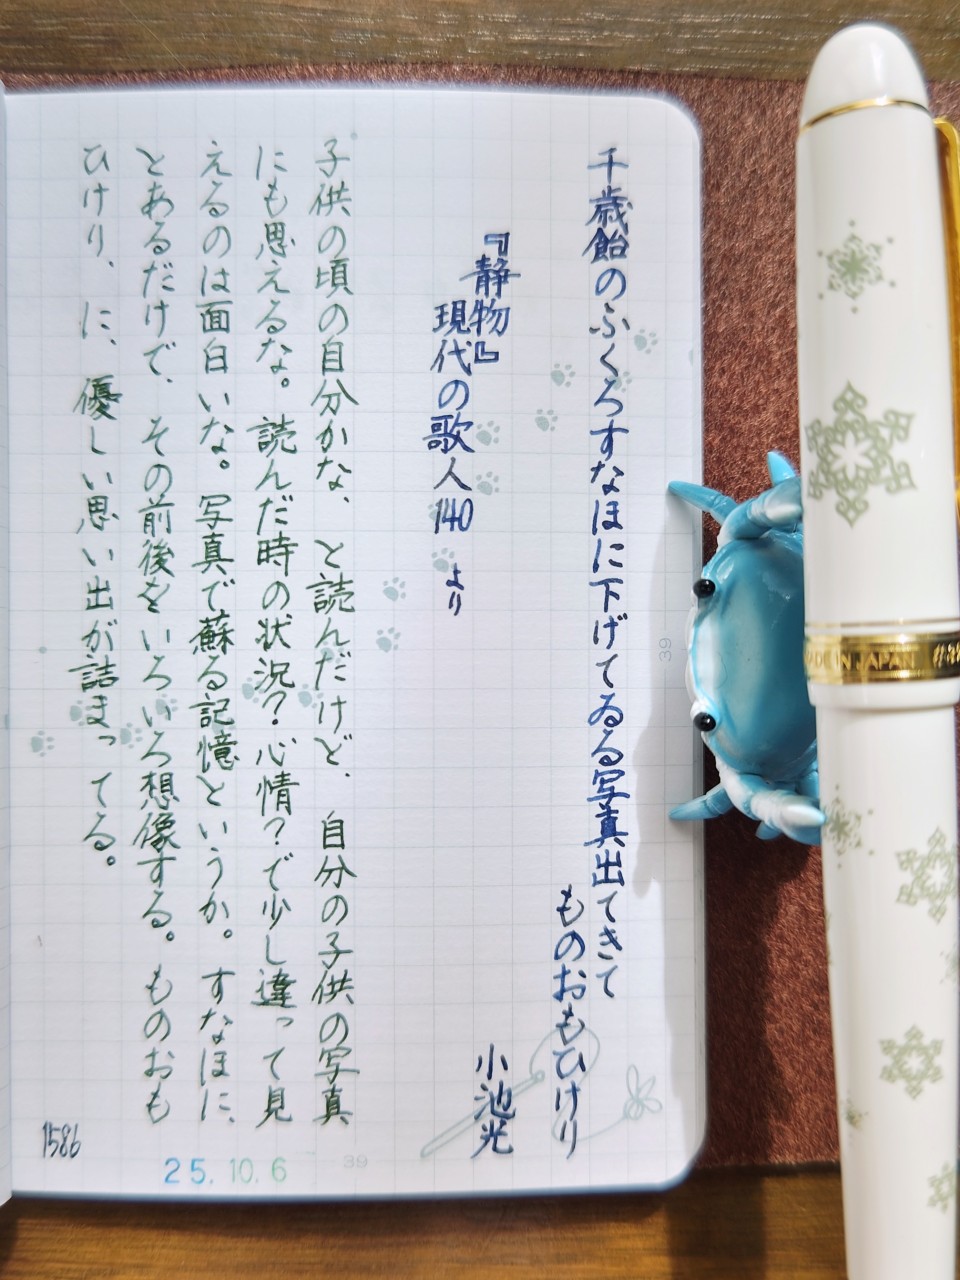 千歳飴のふくろすなほに下げてゐる写真出てきて
ものおもひけり
小池光
『静物』
現代の歌人140 より
子供の頃の自分かな、と読んだけど、自分の子供の写真
にも思えるな。読んだ時の状況?心情?で少し違って見
えるのは面白いな。写真で蘇る記憶というか。すなほに、
とあるだけで、その前後をいろいろ想像する。ものおも
ひけり、に、優しい思い出が詰まってる。
1586
25.10.6
39
39
MADE IN JAPAN